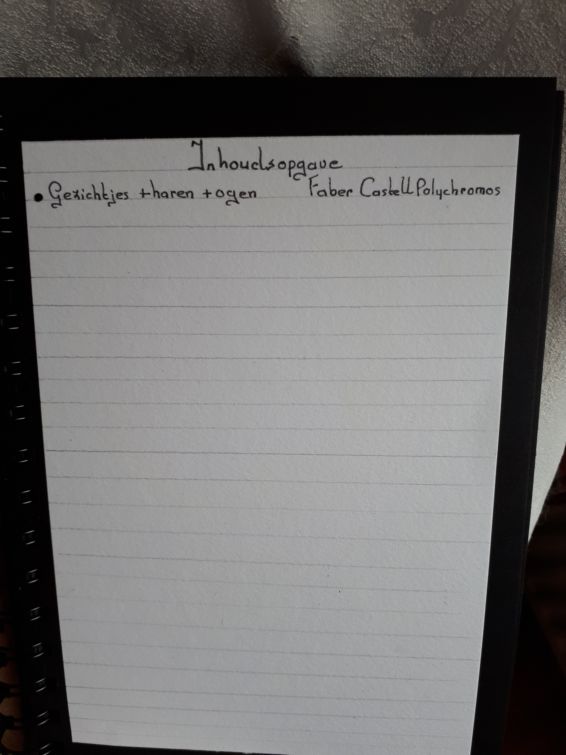 Inhoudsopgave
• Gezichtjes + haren + ogen Faber Castell Polychromos